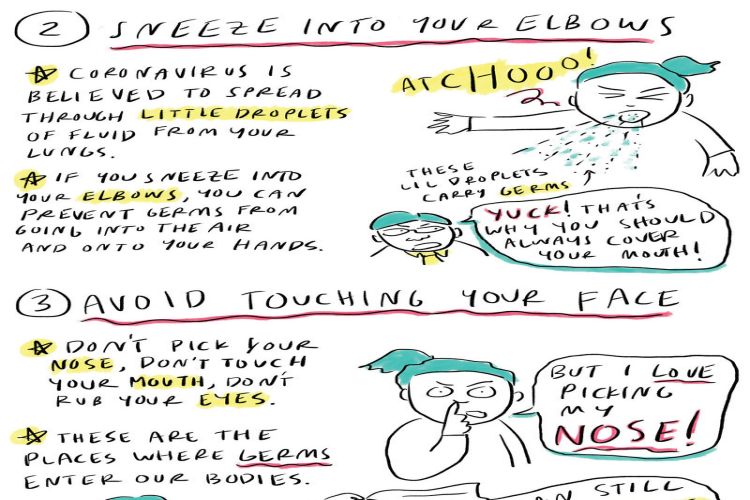 2 SNEEZE INTO YOUR ELBOWS
CORONAVIRUS IS
BELIEVED TO SPREAD
THROUGH LITTLE DROPLETS
OF FLUID FROM YOUR
LUNGS.
IF YOU SNEEZE INTO
YOUR ELBOWS, YOU CAN
PREVENT GERMS FROM
GOING INTO THE AIR
AND ONTO YOUR HANDS.
ATCHOOO!
THESE
LIL DROPLETS
CARRY GERMS
YUCK! THAT'S
WHY YOU SHOULD
ALWAYS COVER
YOUR MOUTH!
3 AVOID TOUCHING YOUR FACE
DON'T PICK YOUR
NOSE, DON'T TOUCH
YOUR MOUTH, DON'T
RUB YOUR EYES.
THESE ARE THE
PLACES WHERE GERMS
ENTER OUR BODIES.
BUT I LOVE
PICKING
MY
NOSE!
STILL